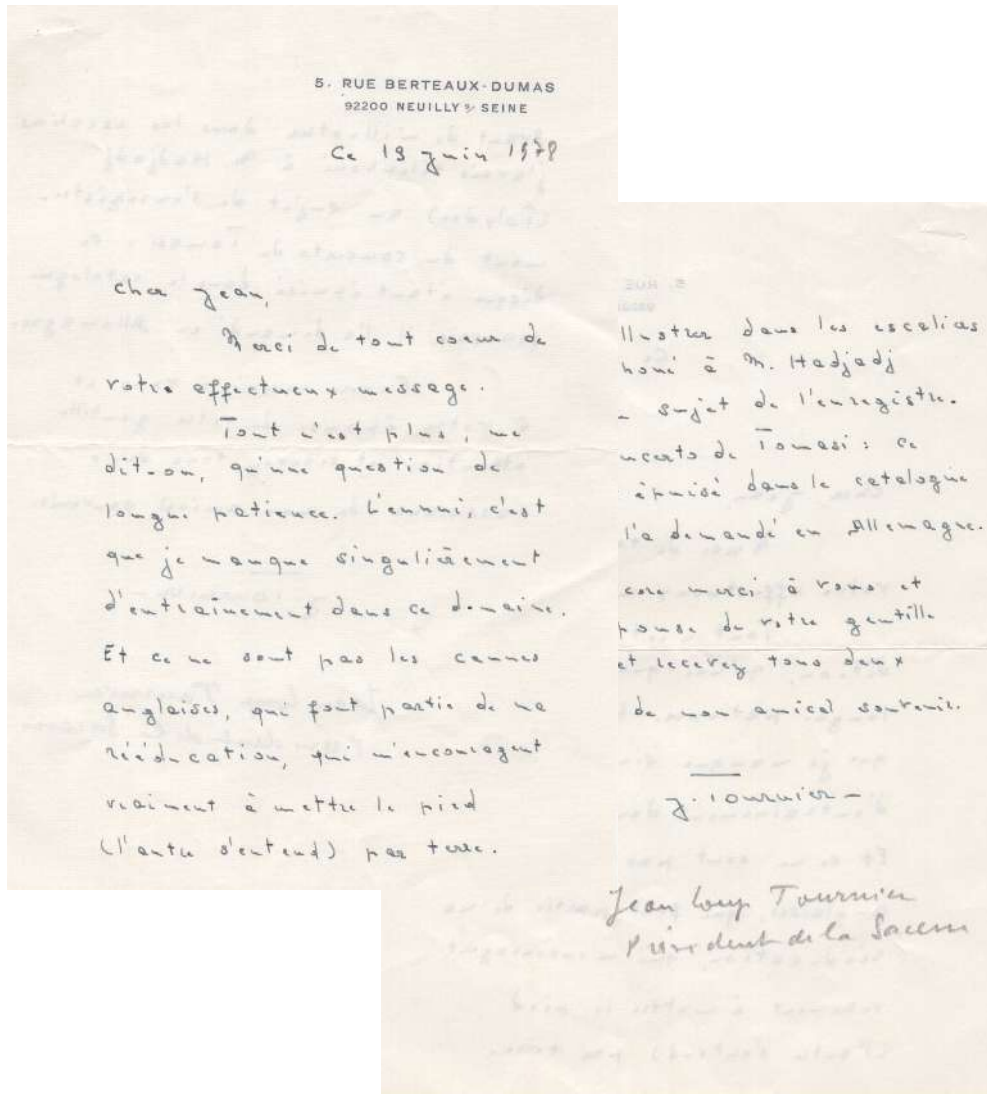 5. RUE BERTEAUX-DUMAS
92200 NEUILLY S/ SEINE
Ce 19 juin 1978
cher Jean,
Merci de tout coeur de
votre affectueux message.
Tout n'est plus, me
dit-on, qu'une question de
longue patience. L'ennui, c'est
que je manque singulièrement
d'entrainement dans ce domaine.
Et ce ne sont pas les cannes
anglaises, qui font partie de ma
rééducation, qui m'encouragent
vraiment à mettre le pied
(l'autre s'entend) par terre.
llustrer dans les escaliers
honé à M. Hadjadj
sujet de l'enregistre-
ncerto de Tomasi : ce
épuisé dans le catalogue
l'a demandé en Allemagne.
core merci à vous et
pouse de votre gentille
et recevez tous deux
de mon amical souvenir.
J. Tournier
Jean Loup Tournier
Président de la Sacem